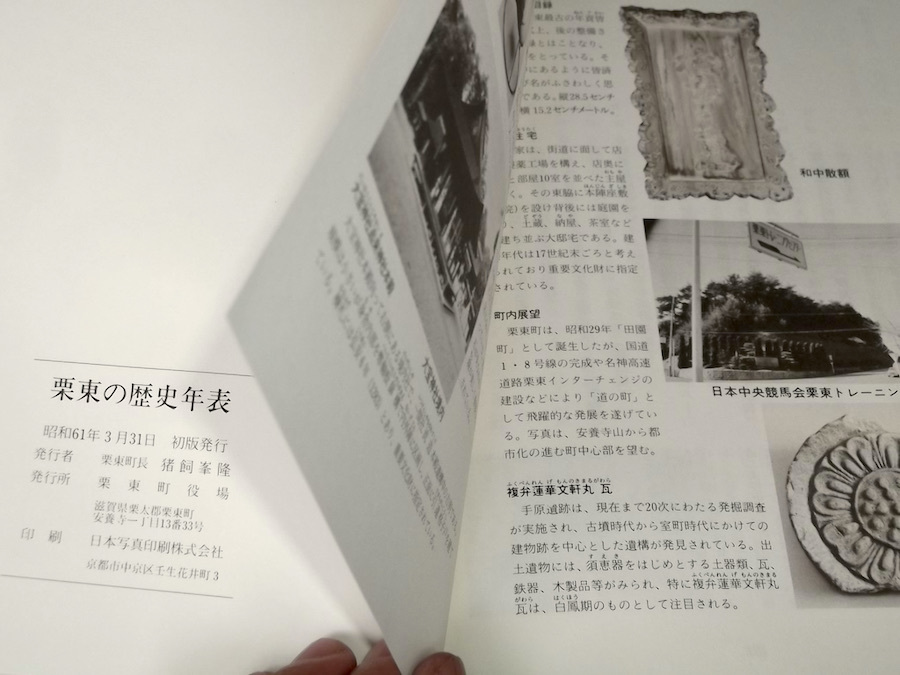 栗東の歴史年表
昭和61年3月31日 初版発行
発行者 栗東町長 猪飼峯隆
発行所 栗東町役場
滋賀県栗太郡栗東町
安養寺一丁目13番33号
印刷 日本写真印刷株式会社
京都市中京区壬生花井町3
東最古の年貢皆
上、後の整備さ
とはことなり、
をとっている。そ
にあるように皆済
名がふさわしく思
である。縦28.5センチ
横15.2センチメートル。
住宅
家は、街道に面して店
薬工場を構え、店奥に
と部屋10室を並べた主屋
く。その東脇に本陣座敷
を設け背後には庭園を
、土蔵、納屋、茶室など
建ち並ぶ大邸宅である。建
年代は17世紀末ごろと考え
られており重要文化財に指定
されている。
町内展望
栗東町は、昭和29年「田園
町」として誕生したが、国道
1・8号線の完成や名神高速
道路栗東インターチェンジの
建設などにより「道の町」と
して飛躍的な発展を遂げてい
る。写真は、安養寺山から都
市化の進む町中心部を望む。
ふくべんれんげもんのきまるがわら
複弁蓮華文軒丸瓦
手原遺跡は、現在まで20次にわたる発掘調査
が実施され、古墳時代から室町時代にかけての
建物跡を中心とした遺構が発見されている。出
土遺物には、須恵器をはじめとする土器類、瓦、
鉄器、木製品等がみられ、特に複弁蓮華文軒丸
瓦は、白鳳期のものとして注目される。
和中散額
日本中央競馬会栗東トレーニン